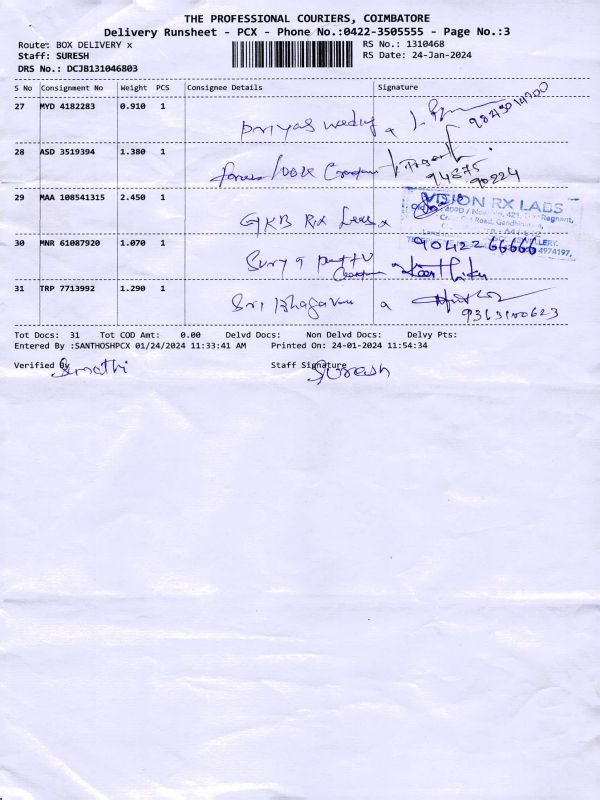 THE PROFESSIONAL COURIERS, COIMBATORE
Delivery Runsheet - PCX - Phone No.:0422-3505555 - Page No.:3
Route: BOX DELIVERY x
RS No.: 1310468
Staff: SURESH
RS Date: 24-Jan-2024
DRS No.: DCJB131046803
S No Consignment No Weight PCS Consignee Details Signature
27 MYD 4182283 0.910 1
priyas
28 ASD 3519394 1.380 1
94875
90224
29 MAA 108541315 2.450 1
GKB Rx Lens x
VISION RX LABS
30 MNR 61087920 1.070 1
90422 66666
4974197,
Surya
Karthika
31 TRP 7713992 1.290 1
Sri Bhagavan a
9363100623
Tot Docs: 31 Tot COD Amt: 0.00 Delvd Docs: Non Delvd Docs: Delvy Pts:
Entered By :SANTHOSHPCX 01/24/2024 11:33:41 AM Printed On: 24-01-2024 11:54:34
Verified By Staff Signature
Sumathi Suresh